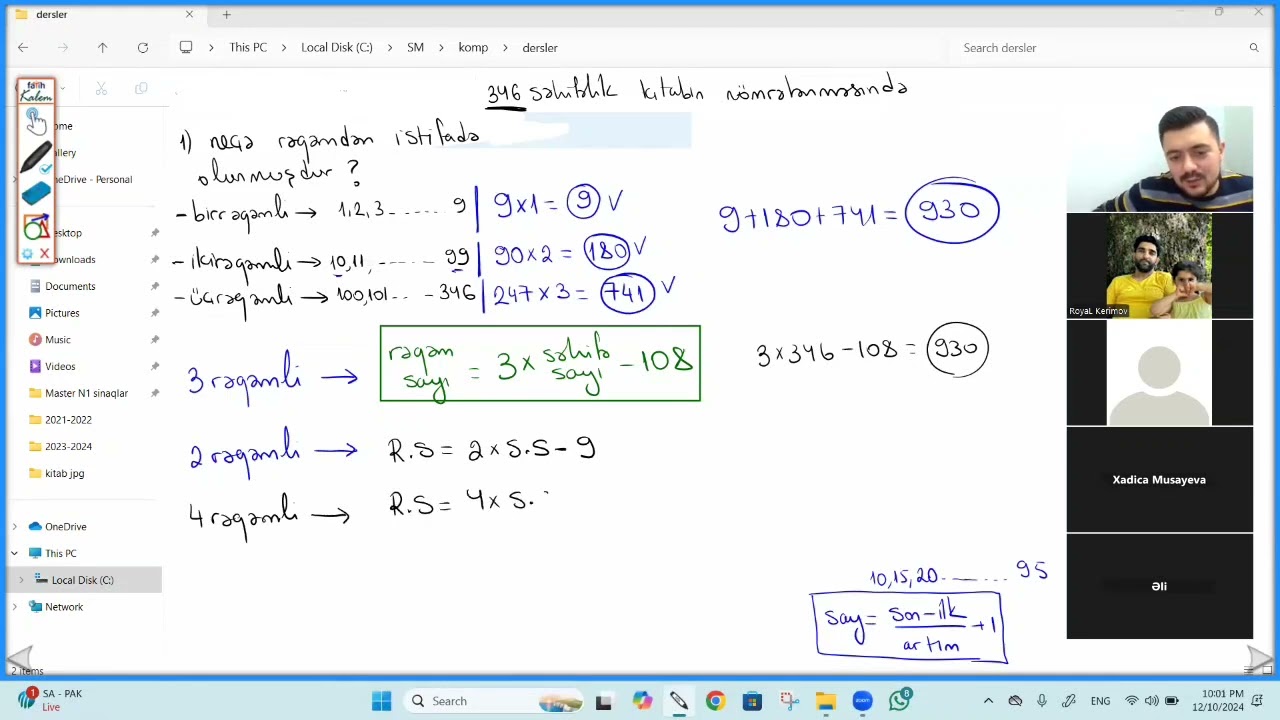 dersler
This PC > Local Disk (C:) > SM > komp > dersler
Search dersler
fatih
Kalem
ome
allery
OneDrive - Personal
esktop
ownloads
Documents
Pictures
Music
Videos
Master N1 sinaqlar
2021-2022
2023-2024
kitab jpg
OneDrive
This PC
Local Disk (C:)
Network
2 items
346 səhifəlik kitabın nömrələnməsində
1) neçə rəqəmdən istifadə
olunmuşdur ?
- birrəqəmli → 1,2,3 ...... 9 | 9×1 = 9 V
- ikirəqəmli → 10,11, ...... 99 | 90×2 = 180 V
- üçrəqəmli → 100,101 ... - 346 | 247×3 = 741 V
9+180+741 = 930
3 rəqəmli → rəqəm sayı = 3 × səhifə sayı - 108
3×346-108 = 930
2 rəqəmli → R.S = 2×S.S - 9
4 rəqəmli → R.S = 4×S.
10,15,20 ........ 95
say = son-ilk / artım + 1
RoyaL Kerimov
Xadica Musayeva
Əli
1
SA - PAK
Live
Search
zoom
8
ENG
10:01 PM
12/10/2024